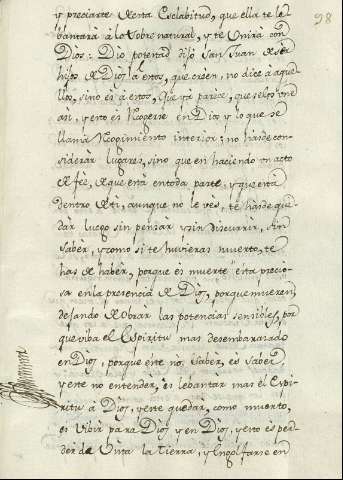 98
y preciarte de esta Esclabitud, que ella te le
bantarà à lo sobre natural, y te Unirà con
Dios: Dio potestad dijo San Juan de ser
hijos de Dios à estos, que creen, no dice à aque
llos, sino es à estos, que ya parece, que se los ve
àn, y esto es recogerse en Dios y lo que se
llama recogimiento interior: no hàs de con
siderar lugares, sino que en haciendo un acto
de feè, de que està en toda parte, y que està
dentro de ti, aunque no le ves, te hàs de que
dar luego sin pensar y sin discurrir, sin
saber, y como si te huvieras muerto, te
has de haber, porque es muerte esta precio
sa en la presencia de Dios, porque mueren
dejando de obrar las potencias sensibles, por
que viba el Espiritu mas desembarazado
en Dios, porque este no saber, es saber
y este no entender, es lebantar mas el Espi
ritu à Dios, y este quedar, como muerto,
es Vibir para Dios y en Dios, y esto es per
der de Vista la Tierra, y Engolfarse en